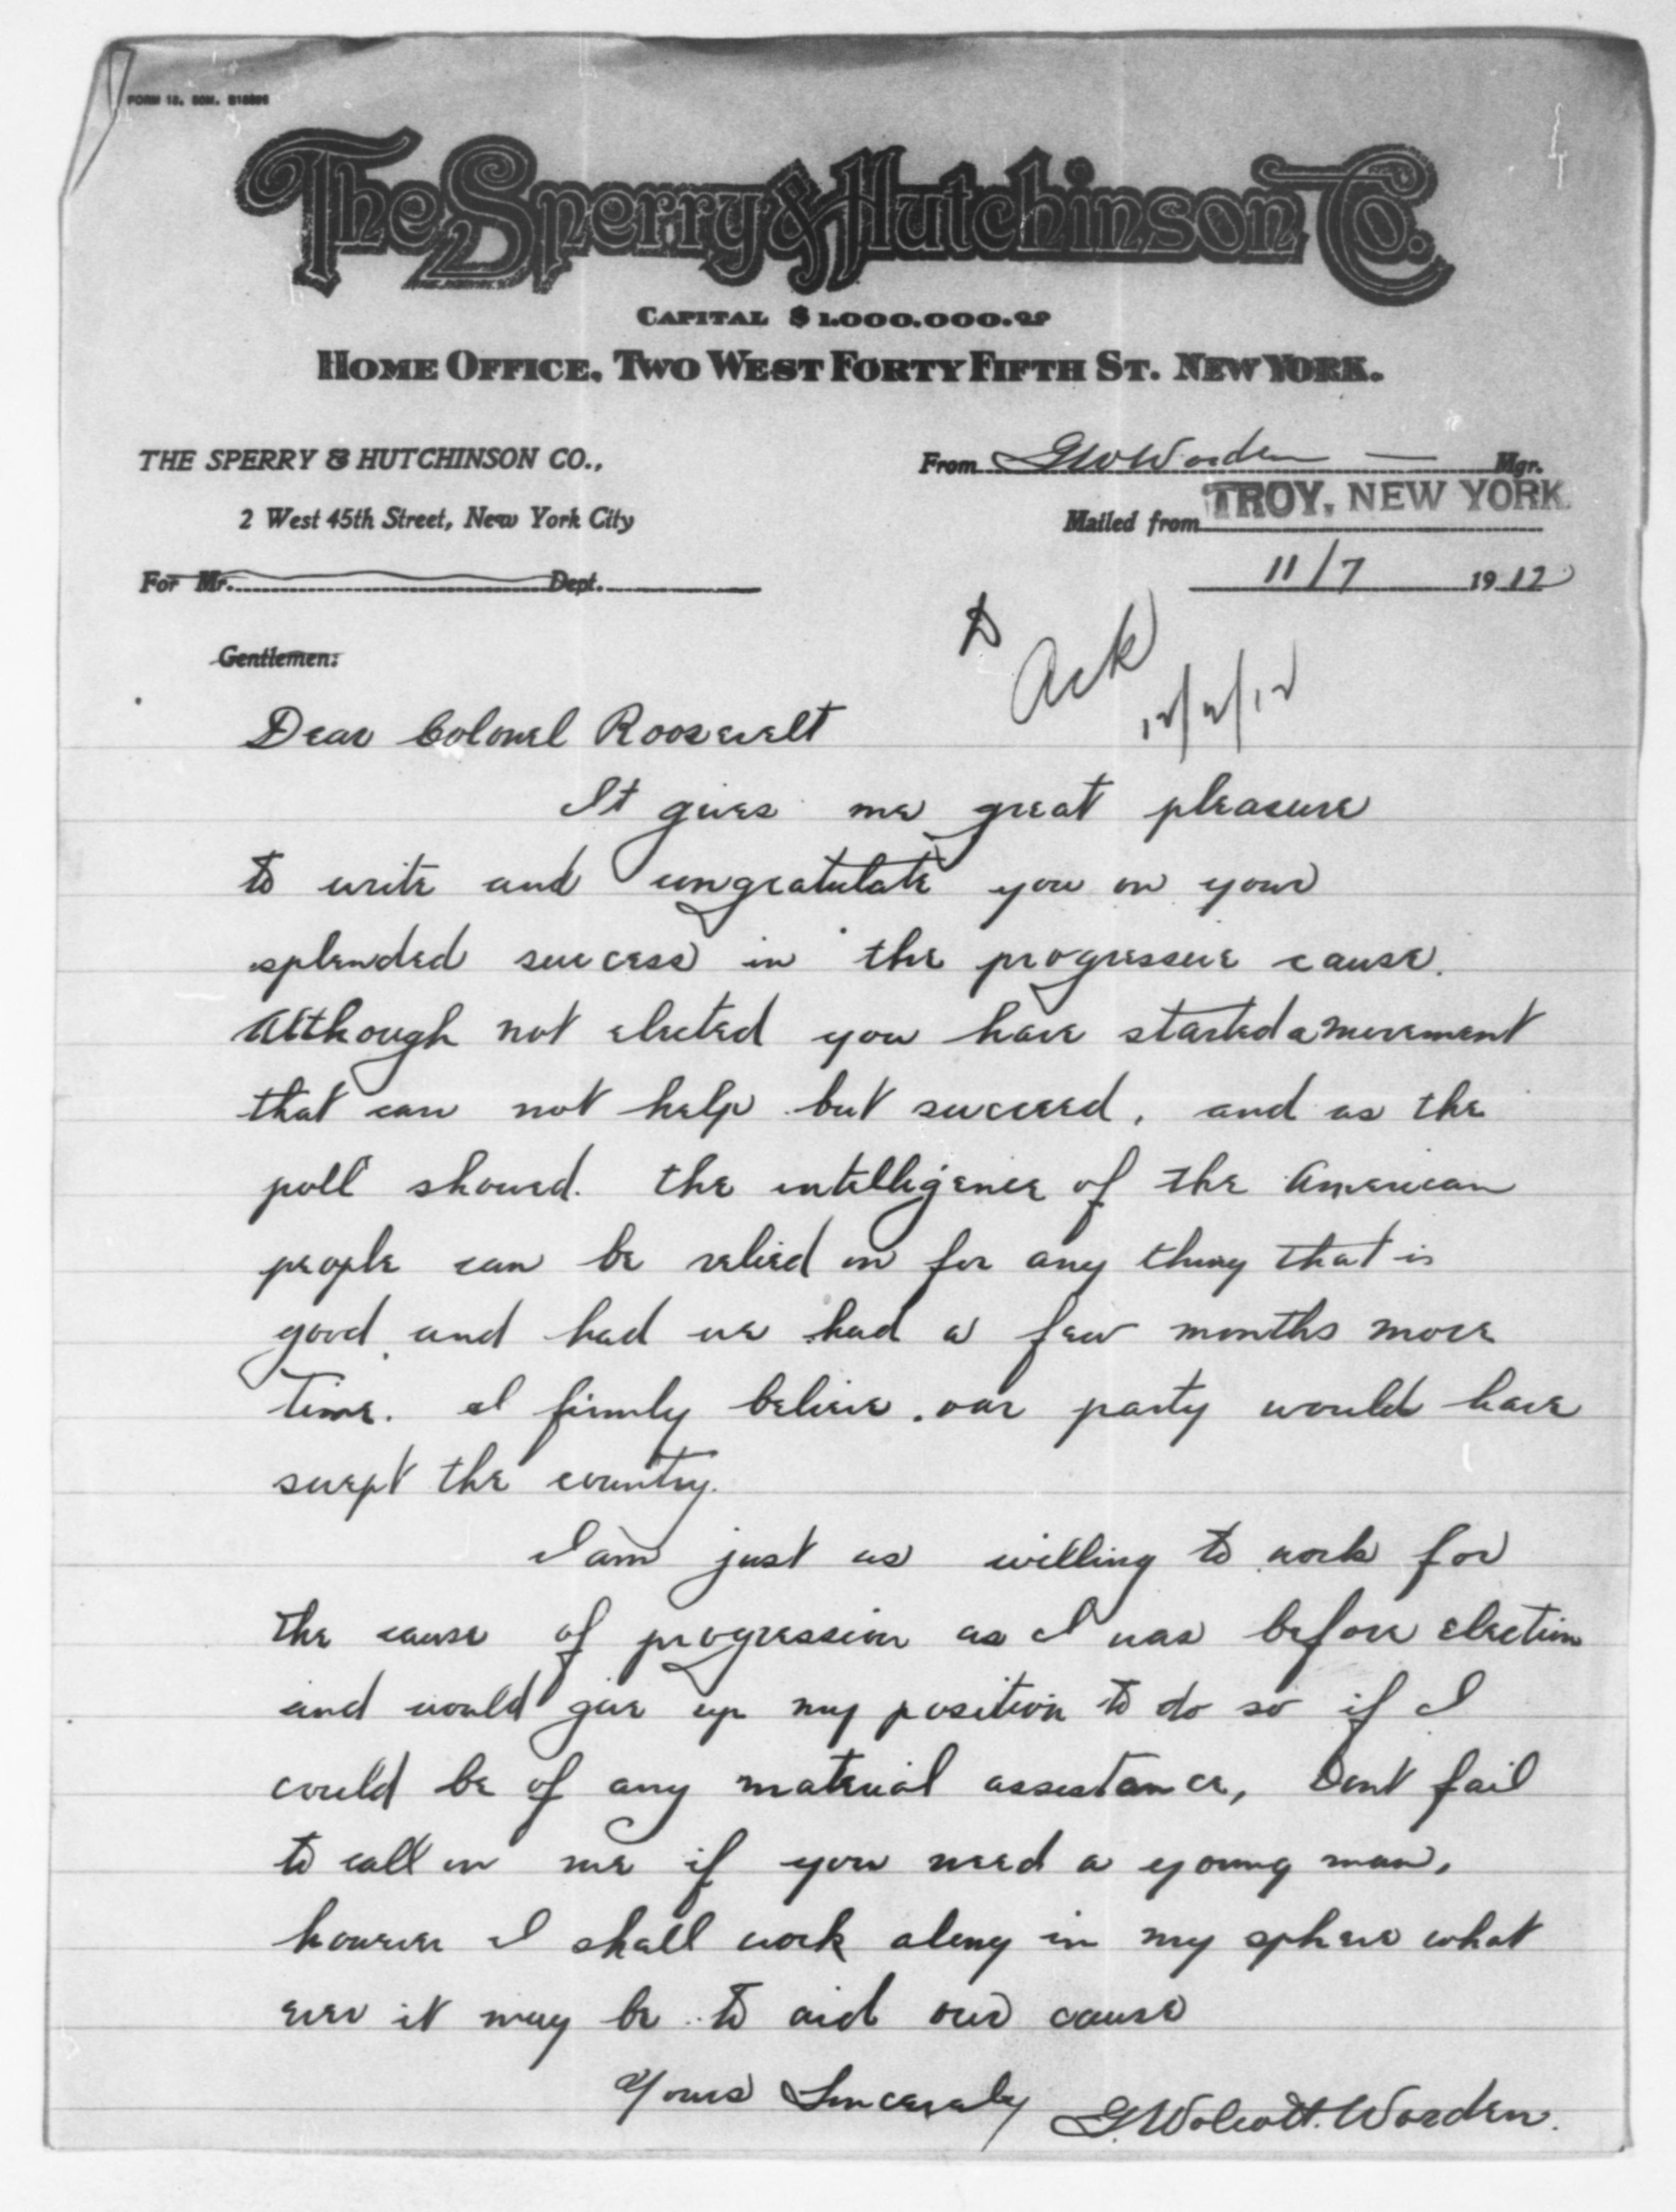 FORM 18. 50M. S18896
The Sperry & Hutchinson Co.
CAPITAL $1.000.000.00
HOME OFFICE. TWO WEST FORTY FIFTH ST. NEW YORK.
THE SPERRY & HUTCHINSON CO.,
From G W Worden — Mgr.
2 West 45th Street, New York City
Mailed from TROY, NEW YORK.
For Mr. Dept.
11/7 1912
Gentlemen:
Ack
12/2/12
Dear Colonel Roosevelt
It gives me great pleasure
to write and congratulate you on your
splended success in the progressive cause.
Although not elected you have started a movement
that can not help but succeed, and as the
poll showed. the intelligence of the American
people can be relied on for any thing that is
good, and had we had a few months more
time. I firmly believe, our party would have
swept the country.
I am just as willing to work for
the cause of progression as I was before election
and would give up my position to do so if I
could be of any material assistance, Dont fail
to call on me if you need a young man,
however I shall work along in my sphere what
ever it may be to aid our cause
Yours Sincerely G. Wolcott. Worden.